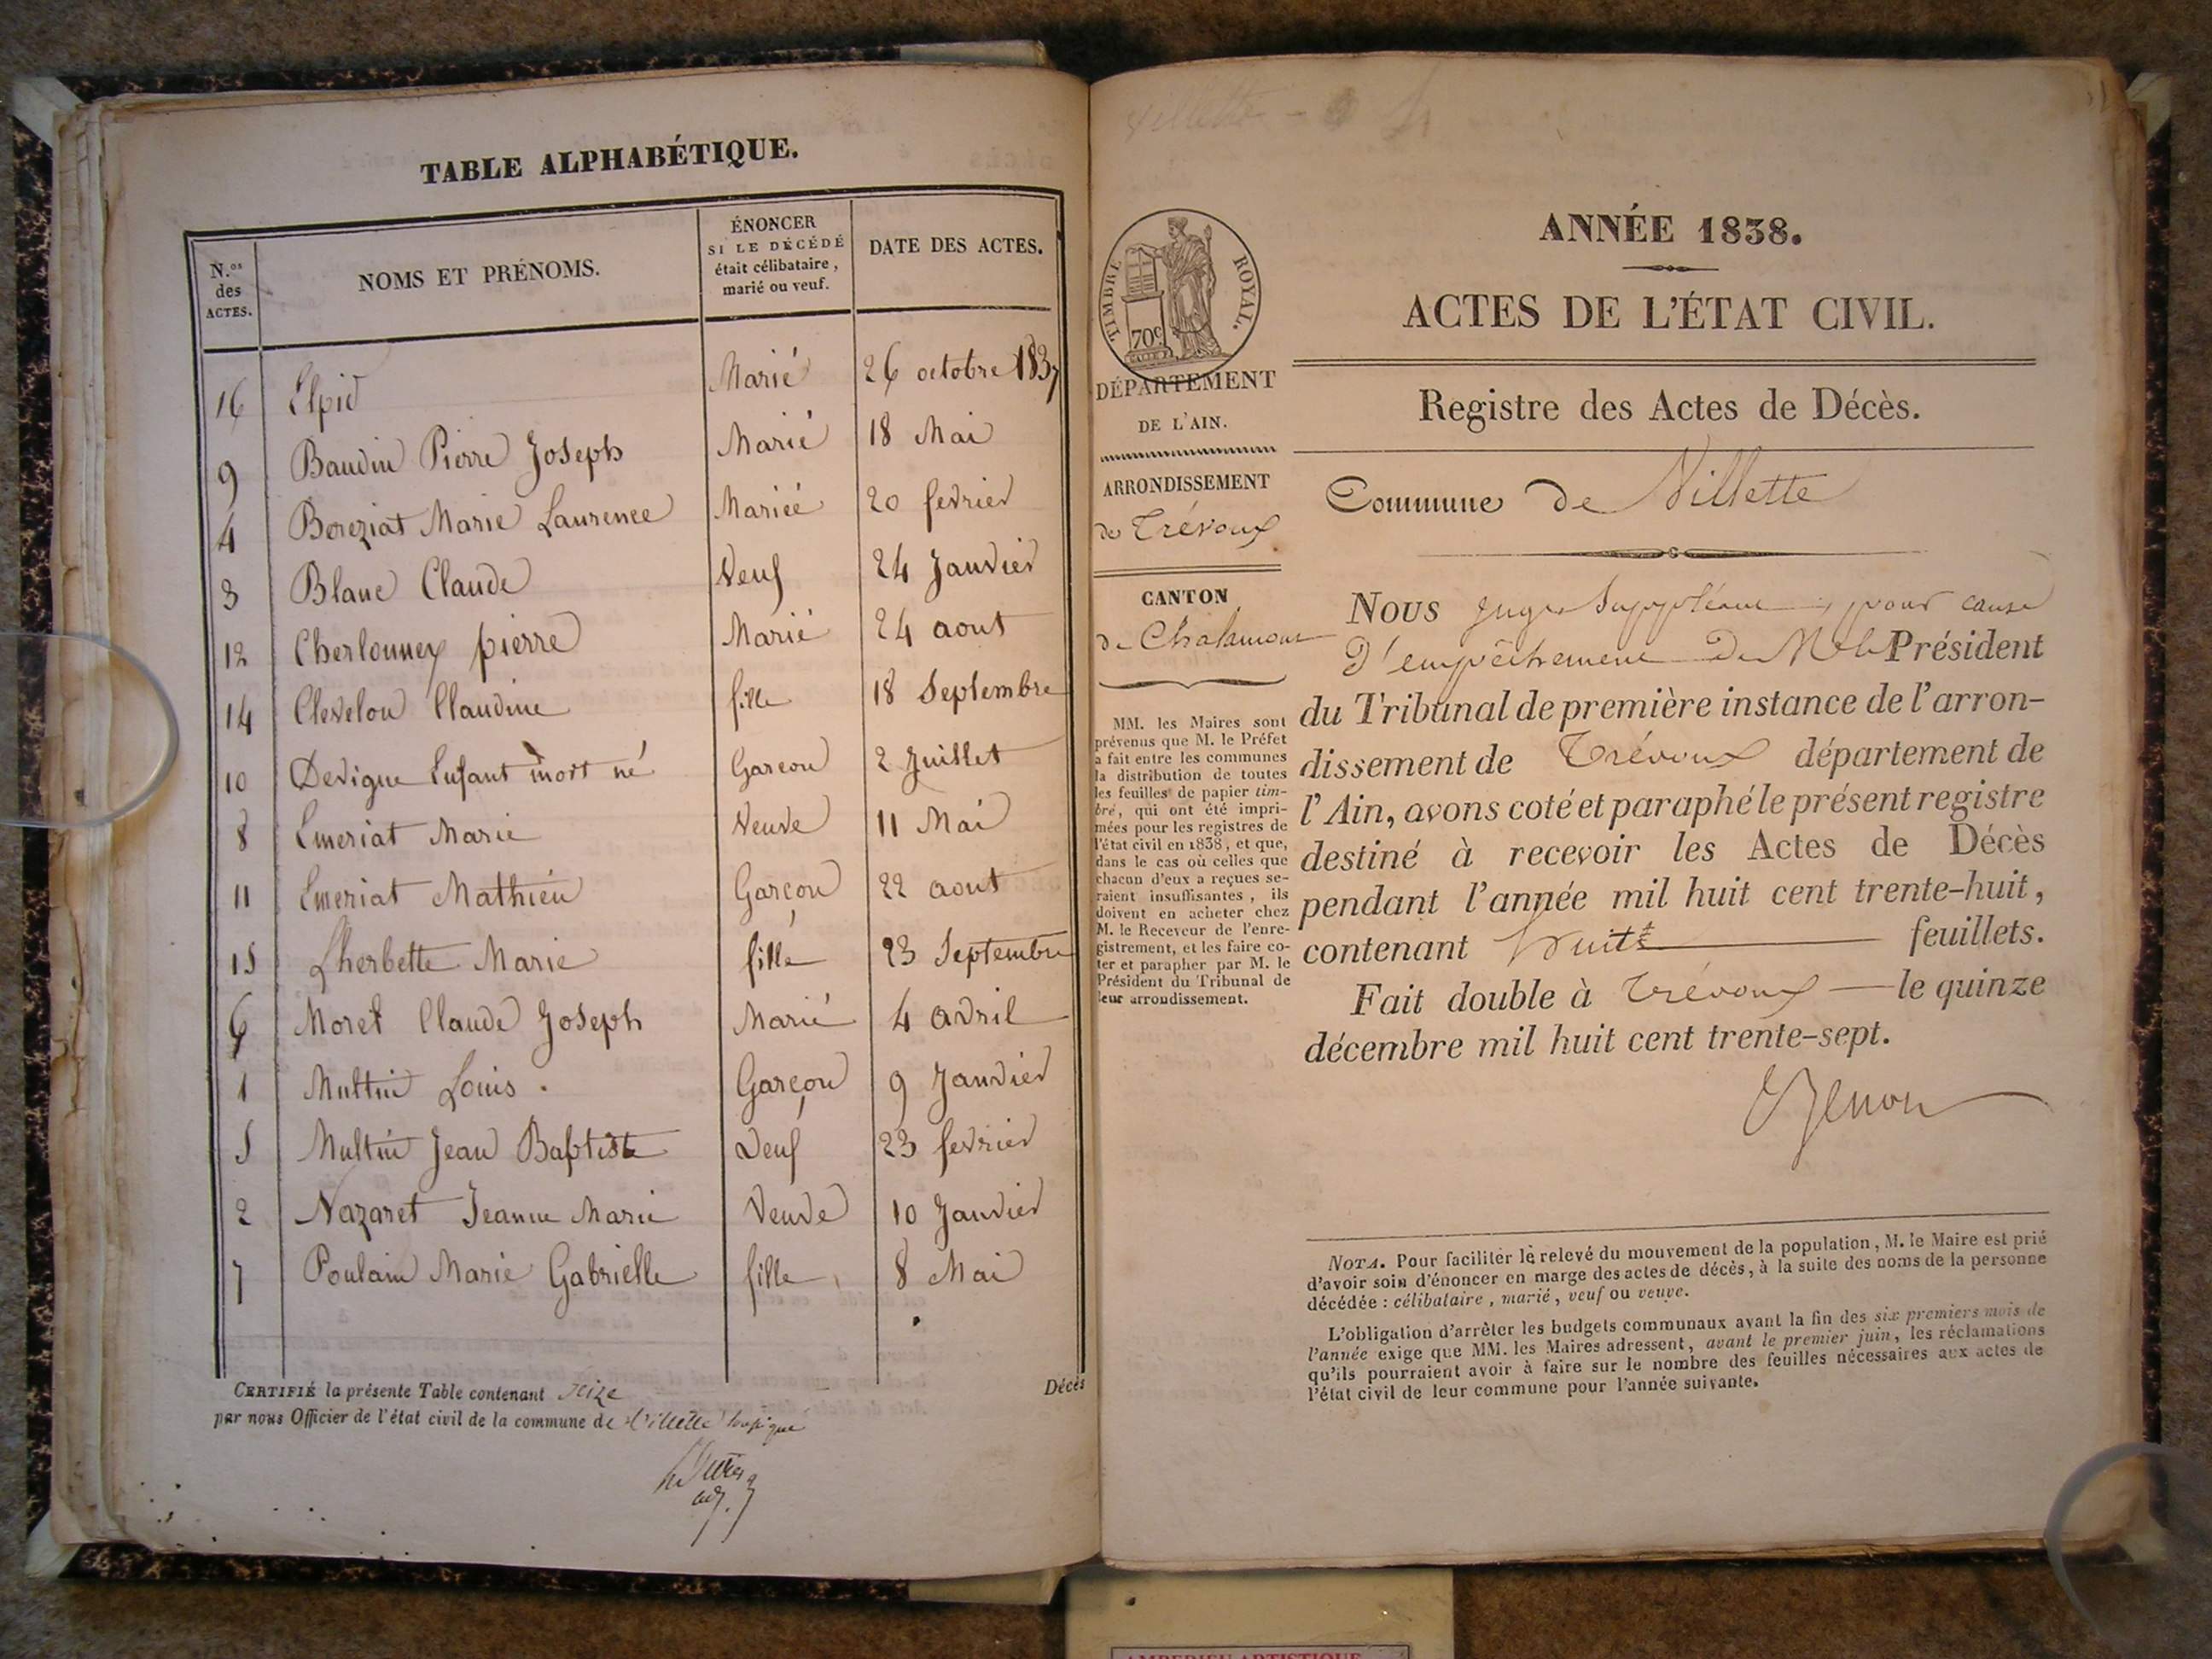 TABLE ALPHABÉTIQUE.
N.os des ACTES.
NOMS ET PRÉNOMS.
ÉNONCER
SI LE DÉCÉDÉ
était célibataire,
marié ou veuf.
DATE DES ACTES.
16 Elpid Marié 26 octobre 1837
9 Baudin Pierre Joseph Marié 18 Mai
4 Bereziat Marie Laurence Mariée 20 fevrier
3 Blanc Claude Veuf 24 Janvier
12 pierre Marié 24 aout
14 Clevelou Claudine fille 18 Septembre
10 Devigne Enfant mort né Garcon 2 Juillet
8 Emeriat Marie Veuve 11 Mai
11 Emeriat Mathieu Garçon 22 aout
15 Lherbette Marie fille 23 Septembre
6 Moret Claude Joseph Marié 4 avril
1 Multin Louis. Garçon 9 Janvier
5 Multin Jean Baptiste Veuf 23 fevrier
2 Nazaret Jeanne Marie Veuve 10 Janvier
7 Poulain Marie Gabrielle fille 8 Mai
CERTIFIÉ la présente Table contenant seize
Décès
par nous Officier de l'état civil de la commune de Villette
adj.
Villette
TIMBRE ROYAL.
70c
DÉPARTEMENT
DE L'AIN.
ARRONDISSEMENT
de Trévoux
CANTON
de Chalamont
MM. les Maires sont
prévenus que M. le Préfet
a fait entre les communes
la distribution de toutes
les feuilles de papier tim-
bré, qui ont été impri-
mées pour les registres de
l'état civil en 1838, et que,
dans le cas où celles que
chacun d'eux a reçues se-
raient insuffisantes, ils
doivent en acheter chez
M. le Receveur de l'enre-
gistrement, et les faire co-
ter et parapher par M. le
Président du Tribunal de
leur arrondissement.
ANNÉE 1838.
ACTES DE L'ÉTAT CIVIL.
Registre des Actes de Décès.
Commune de Villette
Nous Juge Suppléant, pour cause
D'empêchement De M le Président
du Tribunal de première instance de l'arron-
dissement de Trévoux département de
l'Ain, avons coté et paraphé le présent registre
destiné à recevoir les Actes de Décès
pendant l'année mil huit cent trente-huit,
contenant huit feuillets.
Fait double à Trévoux — le quinze
décembre mil huit cent trente-sept.
NOTA. Pour faciliter le relevé du mouvement de la population, M. le Maire est prié
d'avoir soin d'énoncer en marge des actes de décès, à la suite des noms de la personne
décédée : célibataire, marié, veuf ou veuve.
L'obligation d'arrêter les budgets communaux avant la fin des six premiers mois de
l'année exige que MM. les Maires adressent, avant le premier juin, les réclamations
qu'ils pourraient avoir à faire sur le nombre des feuilles nécessaires aux actes de
l'état civil de leur commune pour l'année suivante.
AMBERIEU ARTISTIQUE